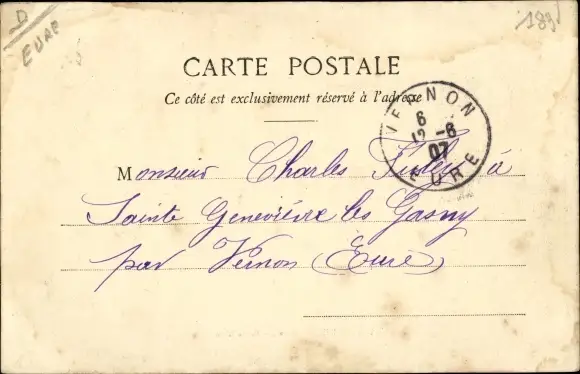 D
EURE
189
CARTE POSTALE
Ce côté est exclusivement réservé à l'adresse
VERNON
6
12 -6
07
EURE
Monsieur Charles à
Sainte Geneviève les Gasny
par Vernon (Eure)